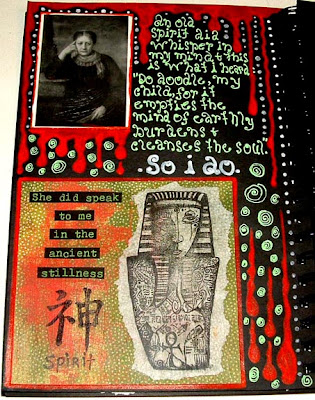 an old
spirit did
whisper in
my mind & this
is what i heard
"Do doodle, my
child, for it
empties the
mind of earthly
burdens &
cleanses the soul.
.So i do.
She did speak
to me
in the
ancient
stillness
神
Spirit